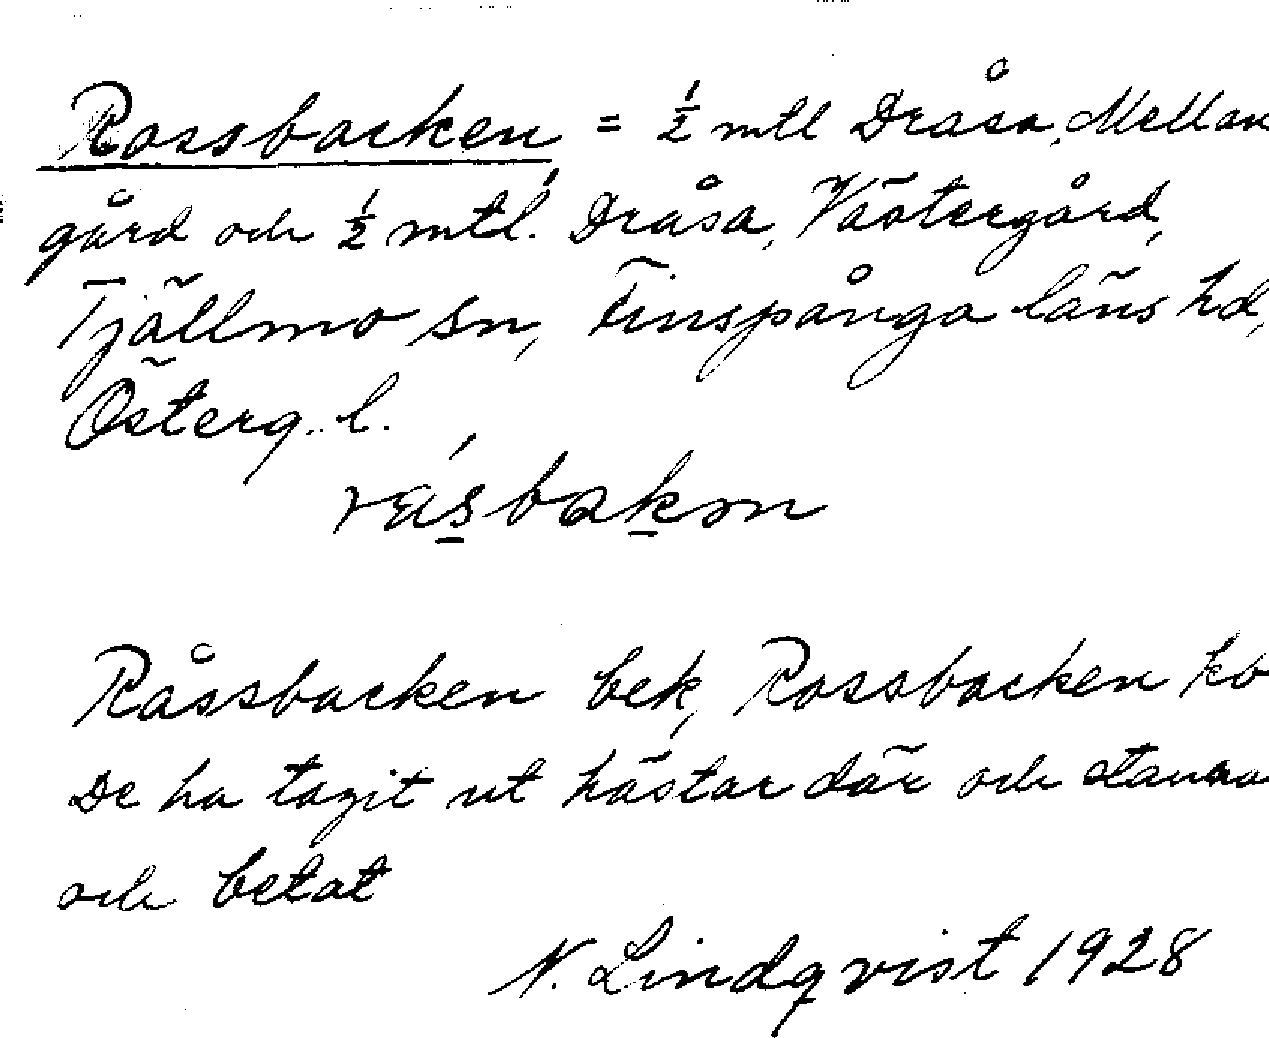 Rossbacken = ½ mtl Dråsa, Mellan
gård och ½ mtl. Dråsa, Västergård,
Tjällmo sn, Finspånga läns hd,
Österg. l.
råsbakən
Råssbacken bek, Rossbacken kb
De ha tagit ut hästar där och stanna
och betat
N. Lindqvist 1928